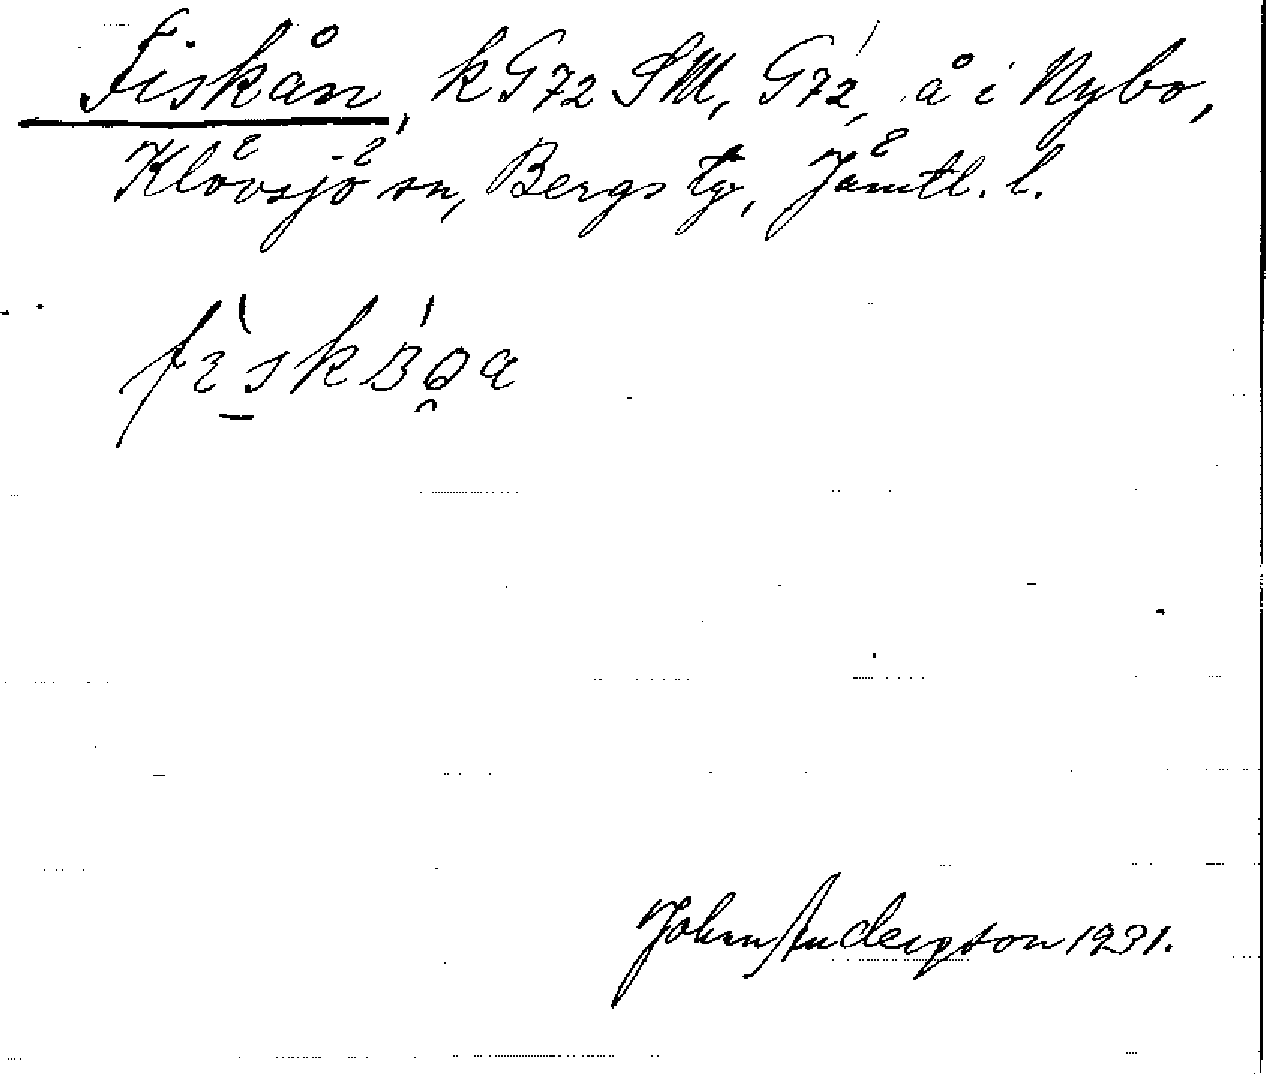 Fiskån, k G72 SM, G72, å i Nybo,
Klövsjö sn, Bergs tg, Jämtl. l.
John Andersson 1931.